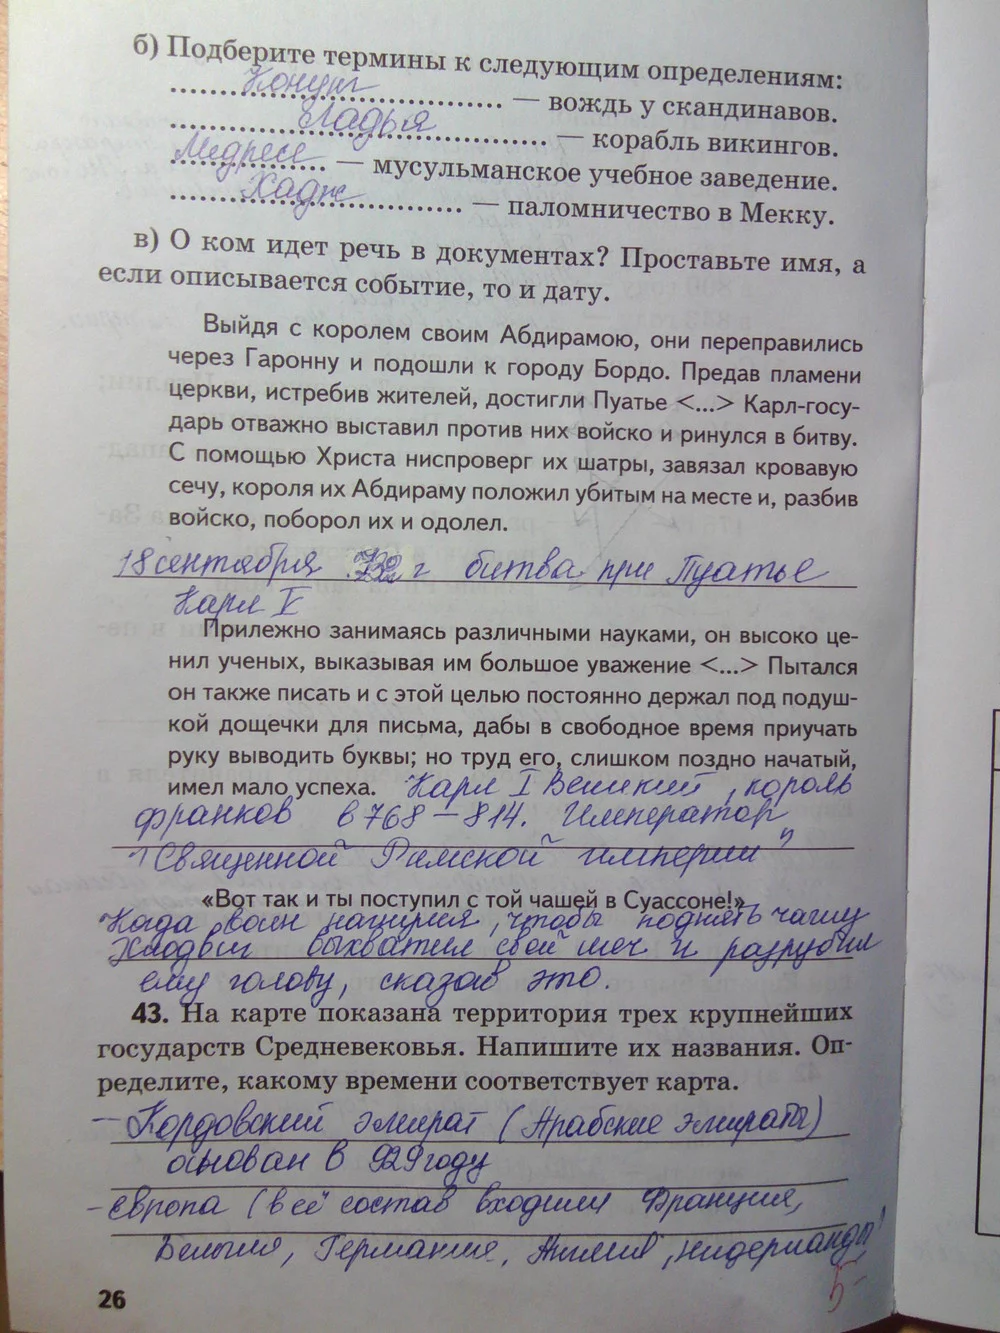 б) Подберите термины к следующим определениям:
Конунг — вождь у скандинавов.
Ладья — корабль викингов.
Медресе — мусульманское учебное заведение.
Хадж — паломничество в Мекку.
в) О ком идет речь в документах? Проставьте имя, а
если описывается событие, то и дату.
Выйдя с королем своим Абдирамою, они переправились
через Гаронну и подошли к городу Бордо. Предав пламени
церкви, истребив жителей, достигли Пуатье <...> Карл-госу-
дарь отважно выставил против них войско и ринулся в битву.
С помощью Христа ниспроверг их шатры, завязал кровавую
сечу, короля их Абдираму положил убитым на месте и, разбив
войско, поборол их и одолел.
18 сентября 732 г битва при Пуатье
Карл V
Прилежно занимаясь различными науками, он высоко це-
нил ученых, выказывая им большое уважение <...> Пытался
он также писать и с этой целью постоянно держал под подуш-
кой дощечки для письма, дабы в свободное время приучать
руку выводить буквы; но труд его, слишком поздно начатый,
имел мало успеха. Карл I Великий, король
франков в 768 – 814. Император
"Священной Римской империи"
«Вот так и ты поступил с той чашей в Суассоне!»
Когда воин нагнулся, чтобы поднять чашу
Хлодвиг выхватил свой меч и разрубил
ему голову, сказав это.
43. На карте показана территория трех крупнейших
государств Средневековья. Напишите их названия. Оп-
ределите, какому времени соответствует карта.
– Кордовский эмират (Арабские эмираты)
основан в 929 году
– Европа (в её состав входили Франция,
Бельгия, Германия, Англия, нидерланды
5-
26